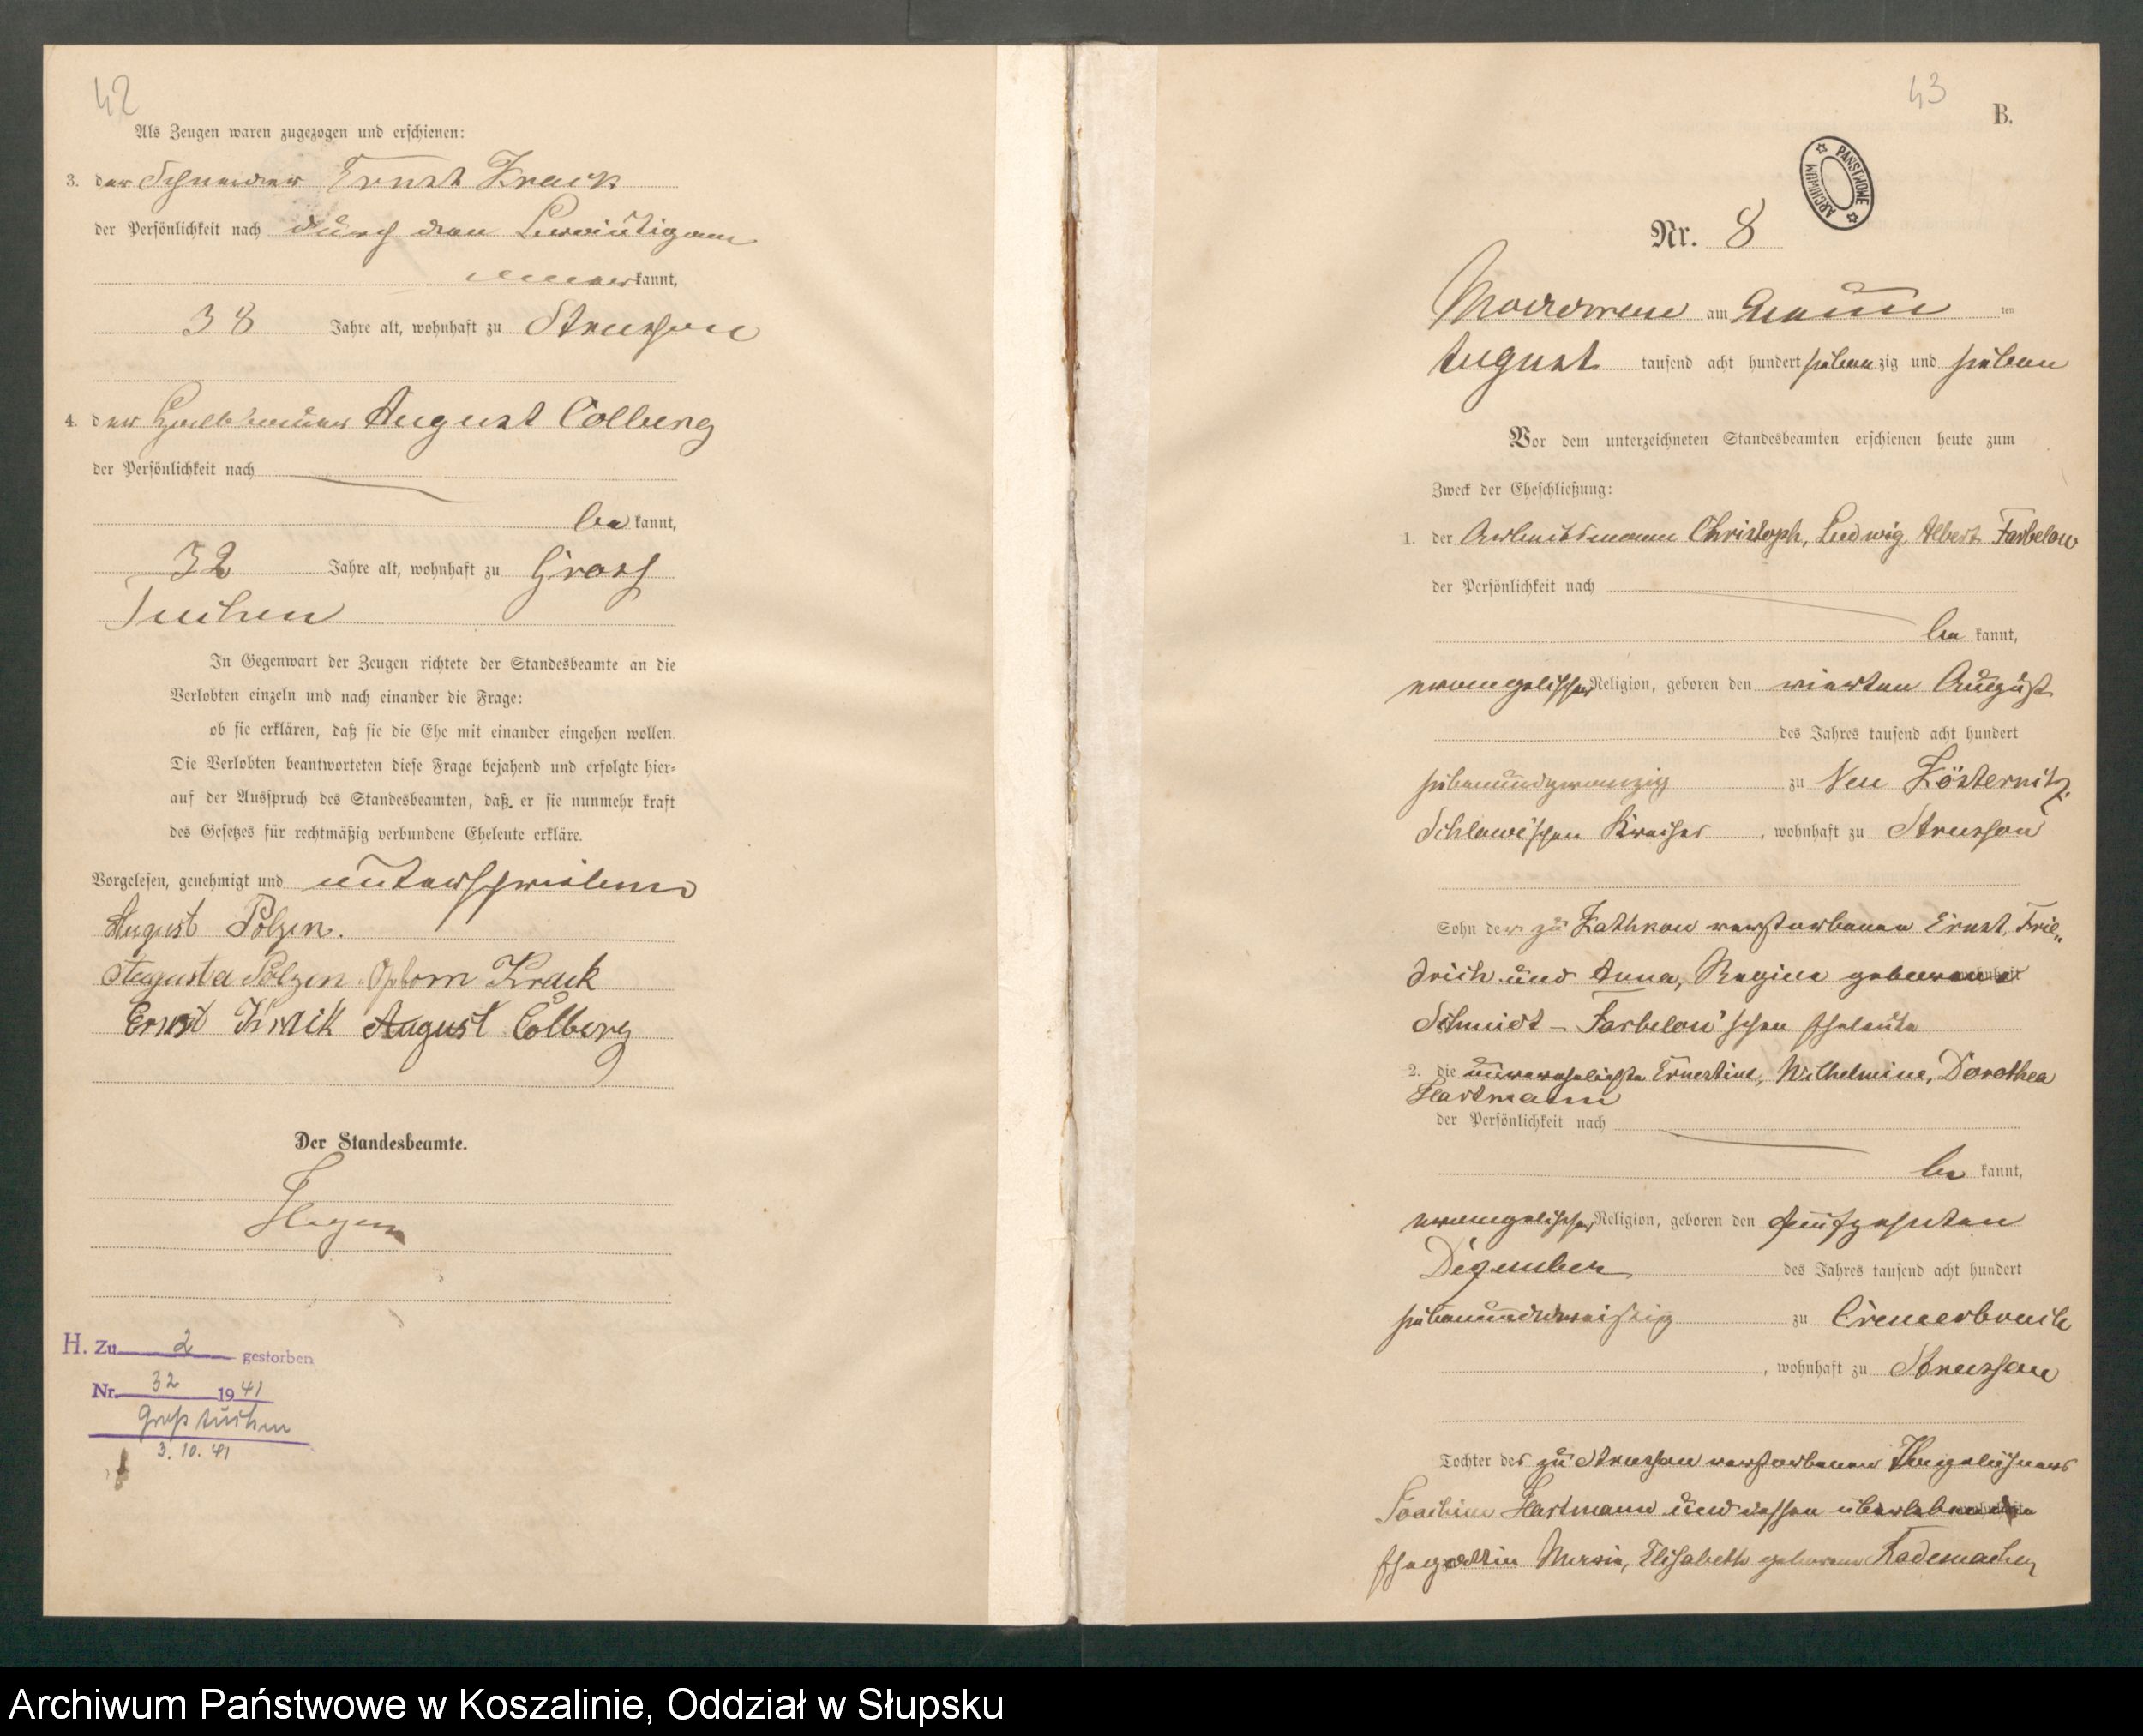 42
Als Zeugen waren zugezogen und erschienen:
3. der Schneider Ernst Krack
der Persönlichkeit nach durch den Bräutigam
anerkannt,
38 Jahre alt, wohnhaft zu Strussow
4. der August Colberg
der Persönlichkeit nach
be kannt,
32 Jahre alt, wohnhaft zu Gross
Tuchen
In Gegenwart der Zeugen richtete der Standesbeamte an die
Verlobten einzeln und nach einander die Frage:
ob sie erklären, daß sie die Ehe mit einander eingehen wollen.
Die Verlobten beantworteten diese Frage bejahend und erfolgte hier=
auf der Ausspruch des Standesbeamten, daß er sie nunmehr kraft
des Gesetzes für rechtmäßig verbundene Eheleute erkläre.
Vorgelesen, genehmigt und unterschrieben
August Polzin.
Augusta Polzin geborn Krack
Ernst Krack August Colberg
Der Standesbeamte.
H. Zu 2 gestorben
Nr. 32 1941
Groß Tuchen
3. 10. 41
43
B.
ARCHIWUM PAŃSTWOWE
Nr. 8
am neun ten
August tausend acht hundert siebenzig und sieben
Vor dem unterzeichneten Standesbeamten erschienen heute zum
Zweck der Eheschließung:
1. der Arbeitsmann Christoph, Ludwig, Albert Farbelow
der Persönlichkeit nach
be kannt,
evangelischer Religion, geboren den vierten August
des Jahres tausend acht hundert
siebenundzwanzig zu Neu Kösternitz
Schlawe'schen Kreises, wohnhaft zu Strussow
Sohn der zu Kathkow verstorbenen Ernst, Frie-
drich und Anna, Regine geborene
Schmidt - Farbelow'schen Eheleute
2. die unverehelichte Ernestine, Wilhelmine, Dorothea
Hartmann
der Persönlichkeit nach
be kannt,
evangelischer Religion, geboren den fünfzehnten
Dezember des Jahres tausend acht hundert
siebenunddreißig zu Cremerbruch
, wohnhaft zu Strussow
Tochter des zu Strussow verstorbenen Tagelöhners
Joachim Hartmann und dessen überlebenden
Ehegattin Maria, Elisabeth geborene Rademacher
Archiwum Państwowe w Koszalinie, Oddział w Słupsku